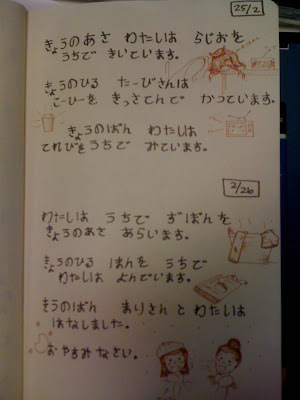 25/2
きょうのあさ わたしは らじおを
うちで きいています。
きょうのひる たーびさんは
こーひーを きっさてんで かっています。
きょうのばん わたしは
てれびをうちで みています。
2/26
わたしは うちで ずぼんを
きょうのあさ あらいます。
きょうのひる ほんを うちで
わたしは よんでいます。
きうのばん まりさん と わたしは
はなしました。
おやすみなさい。